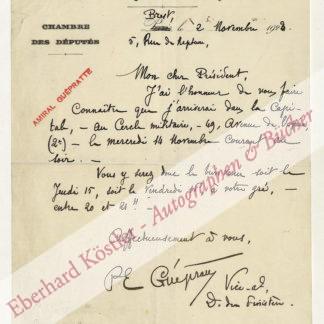 CHAMBRE
DES DÉPUTÉS
AMIRAL GUÉPRATTE
Brest,
le 2 Novembre
5, Rue du
Mon cher Président,
J'ai l'honneur de vous faire
Connaître que j'arriverai dans la Capi-
tale, - au Cercle militaire, - 49, Avenue de l'Opéra
(2e) - le mercredi 14 Novembre Courant au
soir. -
Vous y serez donc le bienvenu soit le
Jeudi 15, soit le Vendredi 16, à votre gré, -
entre 20 et 21h. -
Affectueusement à vous,
PE Guépratte
Vice-al,
D. du Finistère.
Eberhard Köstler - Autographen & Bücher